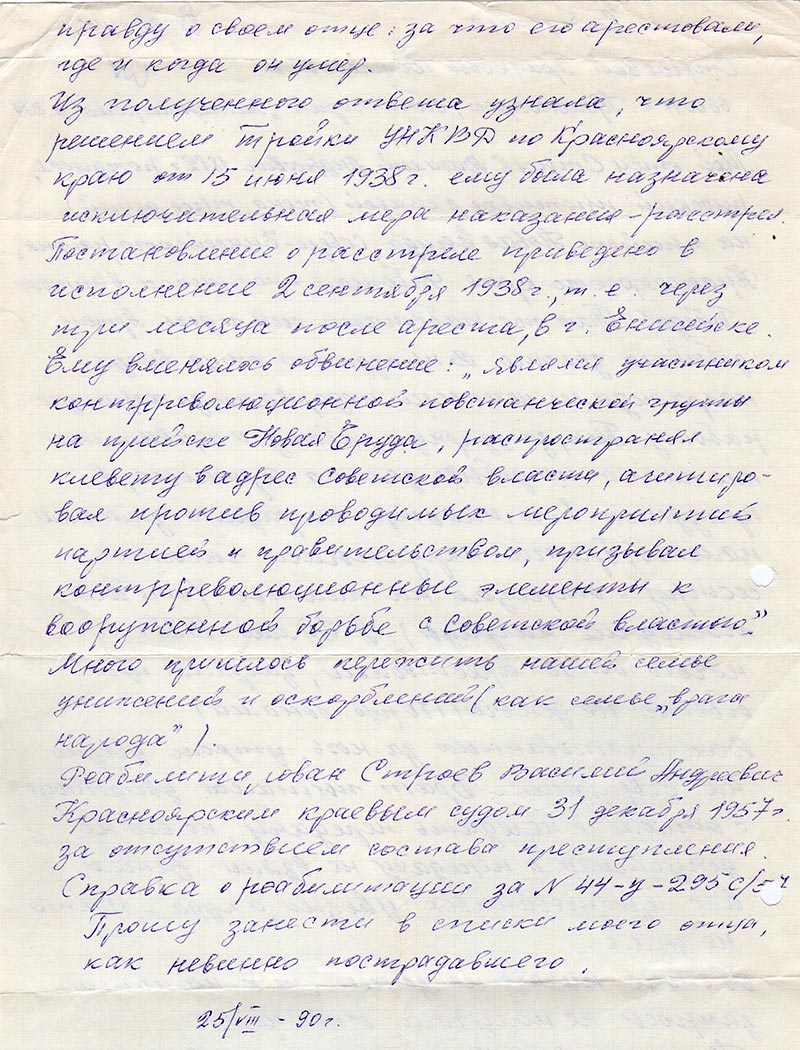 правду о своем отце: за что его арестовали,
где и когда он умер.
Из полученного ответа узнала, что
решением тройки УНКВД по Красноярскому
краю от 15 июня 1938г. ему была назначена
исключительная мера наказания-расстрел.
Постановление о расстреле приведено в
исполнение 2 сентября 1938г., т.е. через
три месяца после ареста, в г. Енисейске.
Ему вменялось обвинение: „являлся участником
контрреволюционной повстанческой группы
на прийске Новая Еруда, распространял
клевету в адрес Советской власти, агитиро-
вал против проводимых мероприятий
партией и правительством, призывал
контрреволюционные элементы к
вооруженной борьбе с Советской властью".
Много пришлось пережить нашей семье
унижений и оскорблений (как семье „врага
народа").
Реабилитирован Строев Василий Андреевич
Красноярским краевым судом 31 декабря 1957г.
за отсутствием состава преступления.
Справка о реабилитации за N 44-у-295с/
Прошу занести в списки моего отца,
как невинно пострадавшего.
25/VIII - 90г.